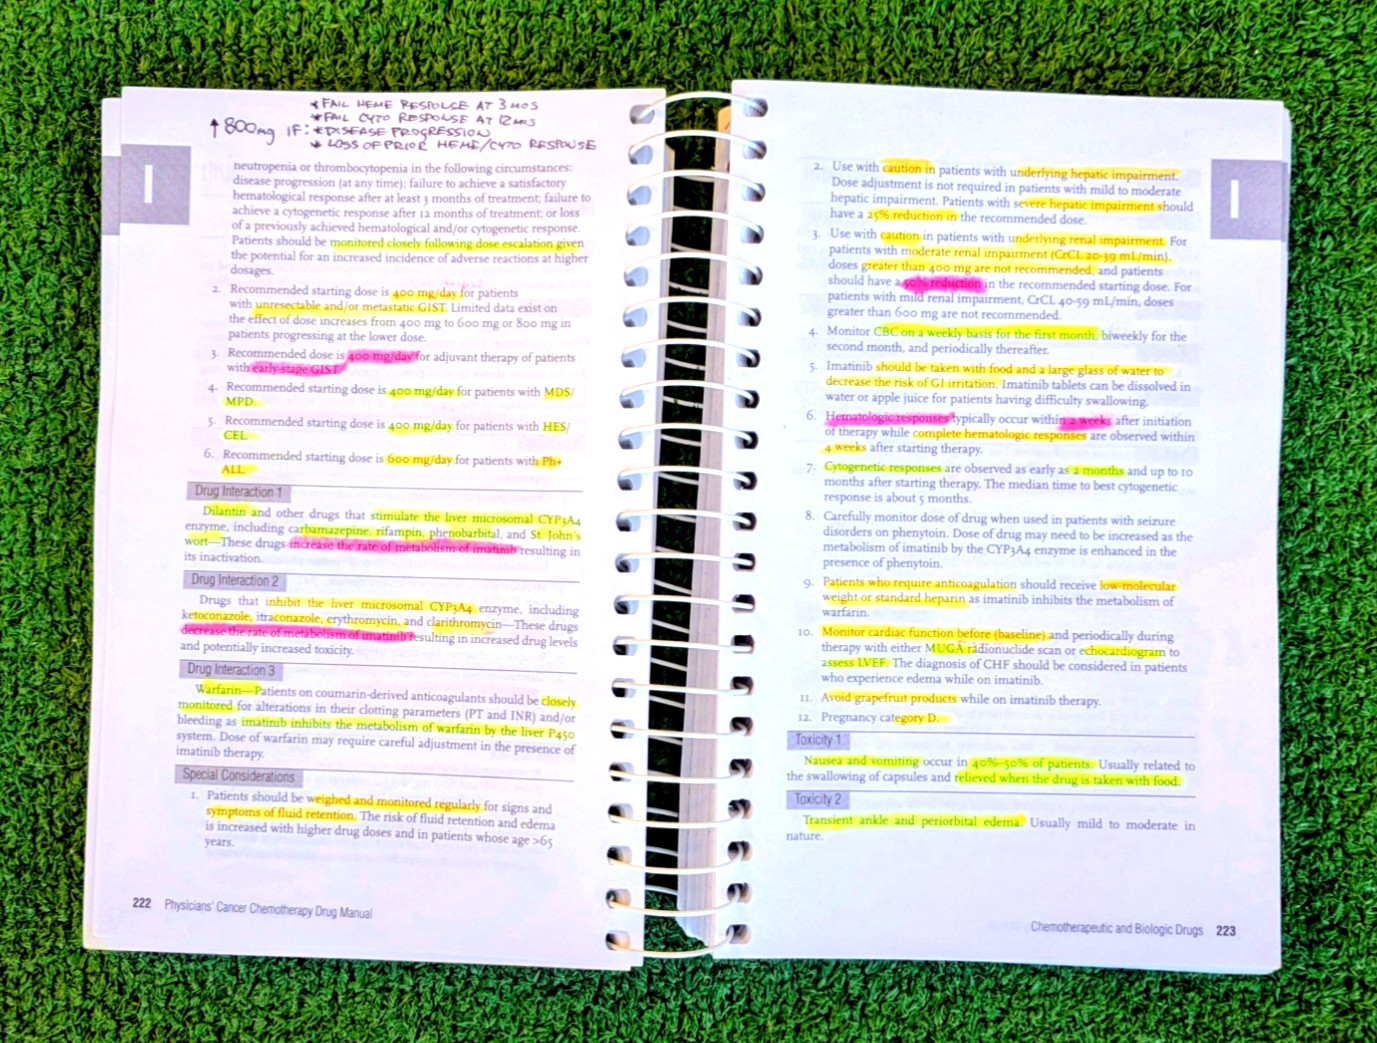 *FAIL HEME RESPONSE AT 3 MOS
*FAIL CYTO RESPONSE AT 12 MOS
↑800mg IF: *DISEASE PROGRESSION
* LOSS OF PRIOR HEME/CYTO RESPONSE
I
neutropenia or thrombocytopenia in the following circumstances:
disease progression (at any time); failure to achieve a satisfactory
hematological response after at least 3 months of treatment; failure to
achieve a cytogenetic response after 12 months of treatment; or loss
of a previously achieved hematological and/or cytogenetic response.
Patients should be monitored closely following dose escalation given
the potential for an increased incidence of adverse reactions at higher
dosages.
2. Recommended starting dose is 400 mg/day for patients
with unresectable and/or metastatic GIST. Limited data exist on
the effect of dose increases from 400 mg to 600 mg or 800 mg in
patients progressing at the lower dose.
3. Recommended dose is 400 mg/day for adjuvant therapy of patients
with early-stage GIST.
4. Recommended starting dose is 400 mg/day for patients with MDS/
MPD.
5. Recommended starting dose is 400 mg/day for patients with HES/
CEL.
6. Recommended starting dose is 600 mg/day for patients with Ph+
ALL.
Drug Interaction 1
Dilantin and other drugs that stimulate the liver microsomal CYP3A4
enzyme, including carbamazepine, rifampin, phenobarbital, and St. John's
wort—These drugs increase the rate of metabolism of imatinib resulting in
its inactivation.
Drug Interaction 2
Drugs that inhibit the liver microsomal CYP3A4 enzyme, including
ketoconazole, itraconazole, erythromycin, and clarithromycin—These drugs
decrease the rate of metabolism of imatinib resulting in increased drug levels
and potentially increased toxicity.
Drug Interaction 3
Warfarin—Patients on coumarin-derived anticoagulants should be closely
monitored for alterations in their clotting parameters (PT and INR) and/or
bleeding as imatinib inhibits the metabolism of warfarin by the liver P450
system. Dose of warfarin may require careful adjustment in the presence of
imatinib therapy.
Special Considerations
1. Patients should be weighed and monitored regularly for signs and
symptoms of fluid retention. The risk of fluid retention and edema
is increased with higher drug doses and in patients whose age >65
years.
222 Physicians' Cancer Chemotherapy Drug Manual
I
2. Use with caution in patients with underlying hepatic impairment.
Dose adjustment is not required in patients with mild to moderate
hepatic impairment. Patients with severe hepatic impairment should
have a 25% reduction in the recommended dose.
3. Use with caution in patients with underlying renal impairment. For
patients with moderate renal impairment (CrCL 20-39 mL/min),
doses greater than 400 mg are not recommended, and patients
should have a 50% reduction in the recommended starting dose. For
patients with mild renal impairment, CrCL 40-59 mL/min, doses
greater than 600 mg are not recommended.
4. Monitor CBC on a weekly basis for the first month, biweekly for the
second month, and periodically thereafter.
5. Imatinib should be taken with food and a large glass of water to
decrease the risk of GI irritation. Imatinib tablets can be dissolved in
water or apple juice for patients having difficulty swallowing.
6. Hematologic responses typically occur within 2 weeks after initiation
of therapy while complete hematologic responses are observed within
4 weeks after starting therapy.
7. Cytogenetic responses are observed as early as 2 months and up to 10
months after starting therapy. The median time to best cytogenetic
response is about 5 months.
8. Carefully monitor dose of drug when used in patients with seizure
disorders on phenytoin. Dose of drug may need to be increased as the
metabolism of imatinib by the CYP3A4 enzyme is enhanced in the
presence of phenytoin.
9. Patients who require anticoagulation should receive low-molecular
weight or standard heparin as imatinib inhibits the metabolism of
warfarin.
10. Monitor cardiac function before (baseline) and periodically during
therapy with either MUGA radionuclide scan or echocardiogram to
assess LVEF. The diagnosis of CHF should be considered in patients
who experience edema while on imatinib.
11. Avoid grapefruit products while on imatinib therapy.
12. Pregnancy category D.
Toxicity 1
Nausea and vomiting occur in 40%-50% of patients. Usually related to
the swallowing of capsules and relieved when the drug is taken with food.
Toxicity 2
Transient ankle and periorbital edema. Usually mild to moderate in
nature.
Chemotherapeutic and Biologic Drugs 223